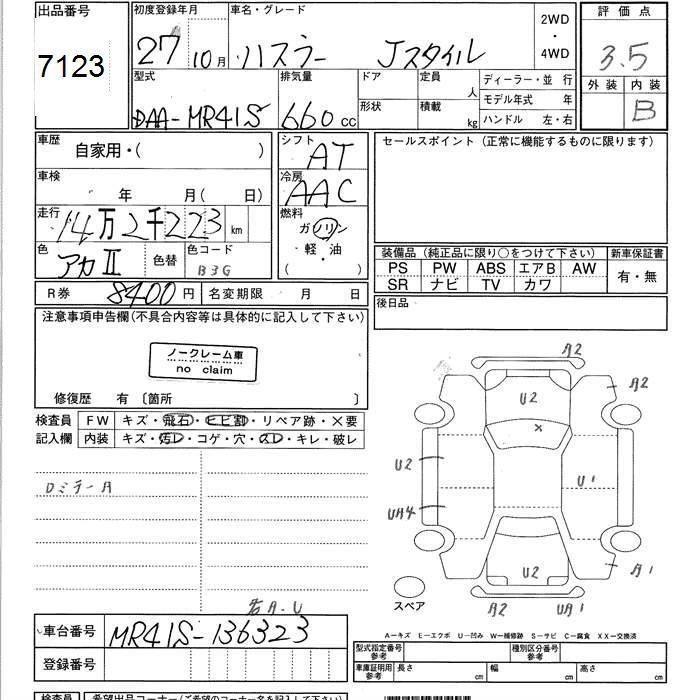 出品番号 初度登録年月 車名・グレード 2WD・4WD 評価点
7123 27 10月 ハスラー Jスタイル 3.5
外装 内装
B
型式 排気量 ドア 定員 人 ディーラー・並行
形状 積載 kg モデル年式 年
DAA-MR41S 660cc ハンドル 左・右
車歴 自家用・( ) シフト AT セールスポイント (正常に機能するものに限ります)
車検 年 月(日) 冷房 AAC
走行 14万2千223km 燃料 ガソリン
軽・油
( )
色 アカⅡ 色替 色コード B3G
装備品 (純正品に限り○をつけて下さい) 新車保証書
PS PW ABS エアB AW 有・無
SR ナビ TV カワ
R券 8400円 名変期限 月 日 後日品
注意事項申告欄(不具合内容等は具体的に記入して下さい)
ノークレーム車
no claim
修復歴 有 〔箇所 〕
検査員 FW キズ・飛石・ヒビ割・リペア跡・×要
記入欄 内装 キズ・汚レ・コゲ・穴・スレ・キレ・破レ
A2
A2
U2
×
U2
U1
UA4
A1
U2
A2 UA1
スペア
A・U
車台番号 MR41S-136323
登録番号
A−キズ E−エクボ U−凹み W−補修跡 S−サビ C−腐食 XX−交換済
型式指定番号 参考 種別区分番号 参考
車庫証明用 参考 長さ cm 幅 cm 高さ cm
検査員 希望出品コーナー(ご希望のコーナー名を記入して下さい)